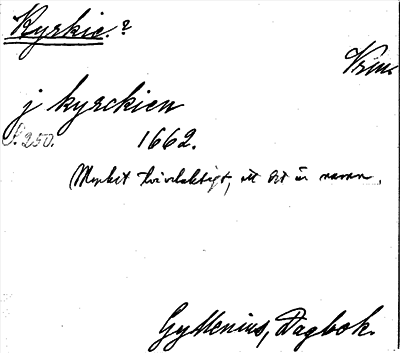 Kyrkie.?
Vrm.
j kyrckien
S. 250. 1662.
Mycket tvivelaktigt, att det är namn.
Gyllenius, Dagbok.